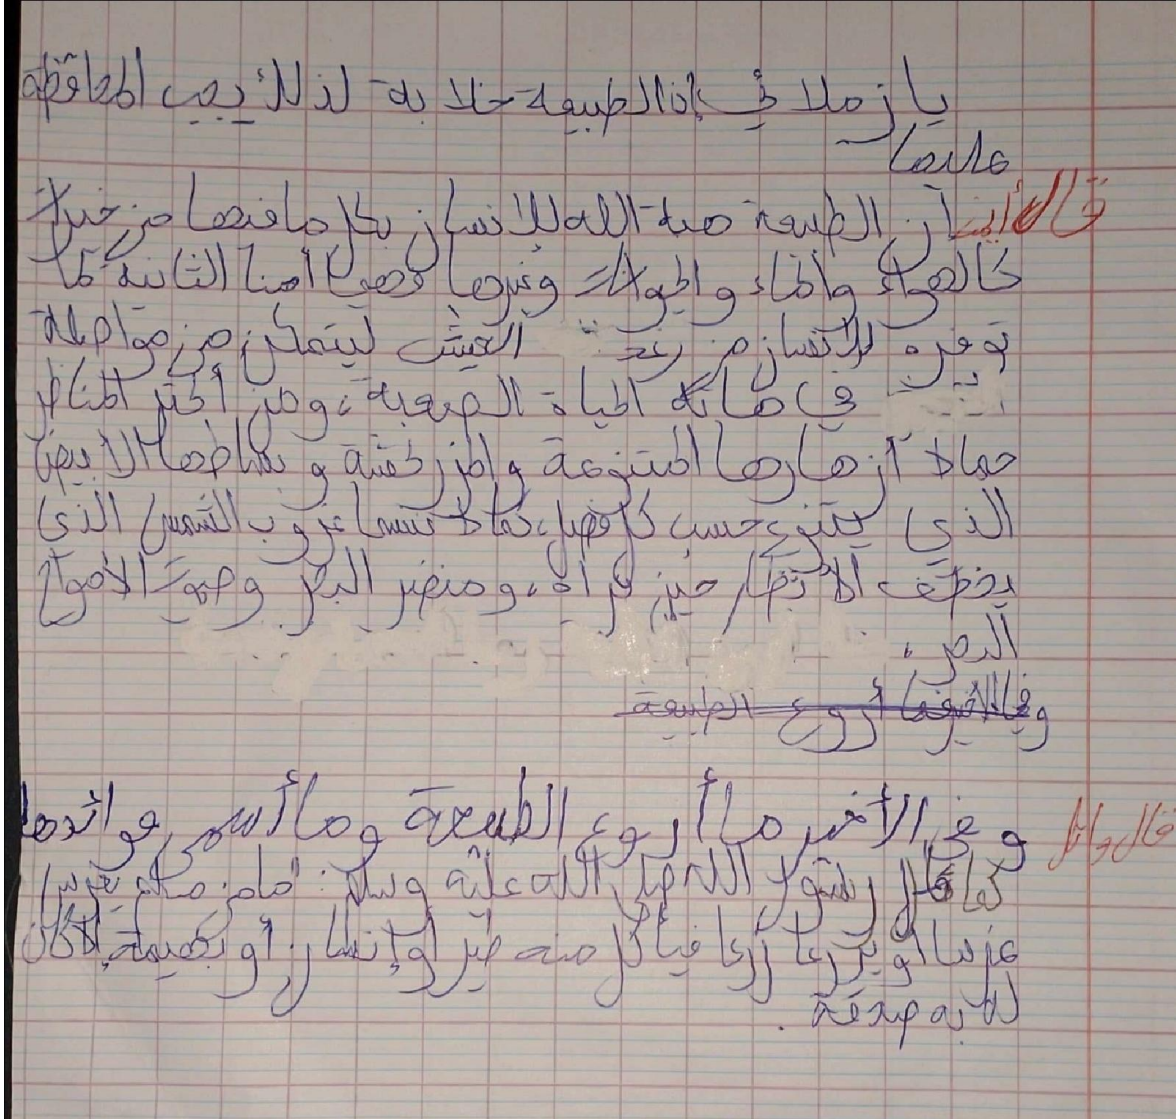 يا زملائي إن الطبيعة خلابة لذلك يجب المحافظة
عليها
قال أيمن أن الطبيعة هبة الله للإنسان بكل ما فيها من خيرات
كالهواء والماء والحيوانات وغيرها فهي أمنا الثانية لما
توفره للإنسان من رغد العيش ليتمكن من مواصلة
في هاته الحياة الصعبة، ومن أكثر المناظر
جمالا أزهارها المتنوعة والمزركشة و بساطها الأبيض
الذي يتنوع حسب كل فصل، كما لا ننسا غروب الشمس الذي
يخطف الأنظار حين نراه، ومنضر البحر وصوت الأمواج
وفي الأخير ما أروع الطبيعة
قال وائل وفي الأخير ما أروع الطبيعة وما أسمى فوائدها
كما قال رسول الله صلى الله عليه وسلم: فما من مسلم يغرس
غرسا أو يزرع زرعا فيأكل منه طير أو إنسان أو بهيمة إلا كان
له به صدقة.